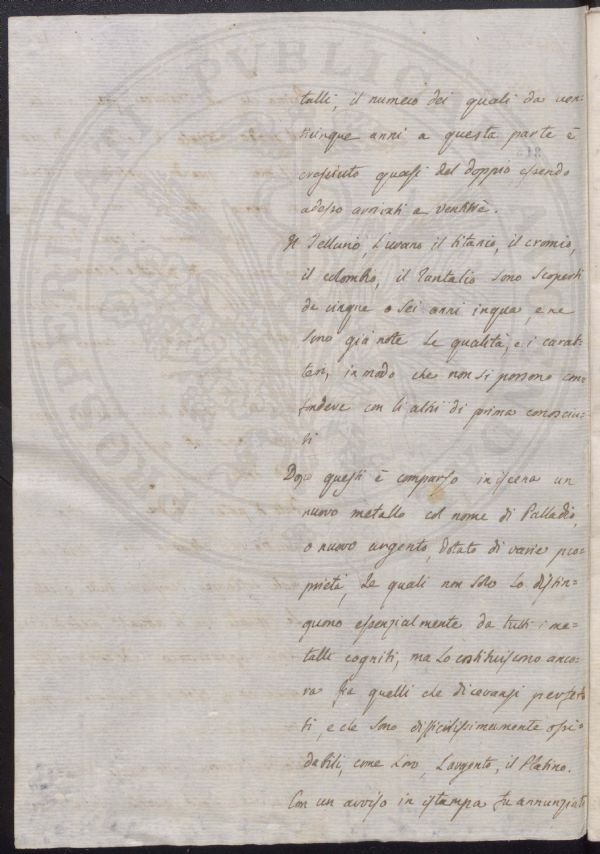 talli, il numero dei quali da ven-
ticinque anni a questa parte è
cresciuto quasi del doppio essendo
adesso arrivati a ventitrè.
Il Tellurio, L'urano il titanio, il cromio,
il colombio, il Tantalio sono scoperti
da cinque o sei anni inqua, e ne
sono già note le qualità, e i carat-
teri, in modo che non si possono con-
fondere con li altri di prima conosciu-
ti
Dopo questi è comparso in iscena un
nuovo metallo col nome di Palladio,
o nuovo argento, dotato di varie pro-
prietà, le quali non solo lo distin-
guono essenzialmente da tutti i me-
talli cogniti, ma lo costituiscono anco-
ra fra quelli che dicevansi perfet-
ti, e che sono difficilissimamente ossi-
dabili, come L'oro, L'argento, il Platino.
Con un avviso in istampa fu annunziato